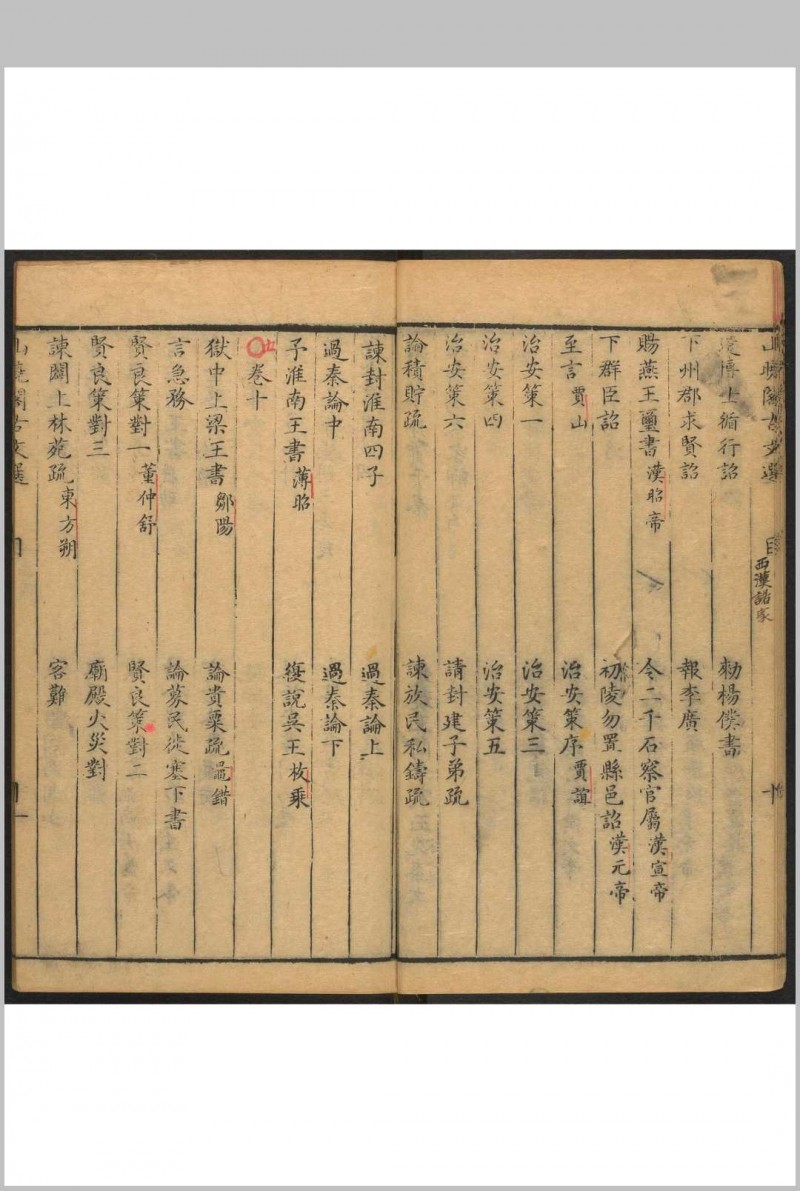 山曉閣古文選
目
西漢諸家
十
遣博士循行詔　勑楊僕書
下州郡求賢詔　報李廣
賜燕王璽書漢昭帝　令二千石察官屬漢宣帝
下群臣詔　初陵勿置縣邑詔漢元帝
至言賈山　治安策序賈誼
治安策一　治安策三
治安策四　治安策五
治安策六　請封建子弟疏
論積貯疏　諫放民私鑄疏
諫封淮南四子　過秦論上
過秦論中　過秦論下
予淮南王書薄昭　復說吳王枚乘
止
卷十
獄中上梁王書鄒陽　論貴粟疏鼂錯
言急務　論募民徙塞下書
賢良策對一董仲舒　賢良策對二
賢良策對三　廟殿火災對
諫闢上林苑疏東方朔　客難
山曉閣古文選
目